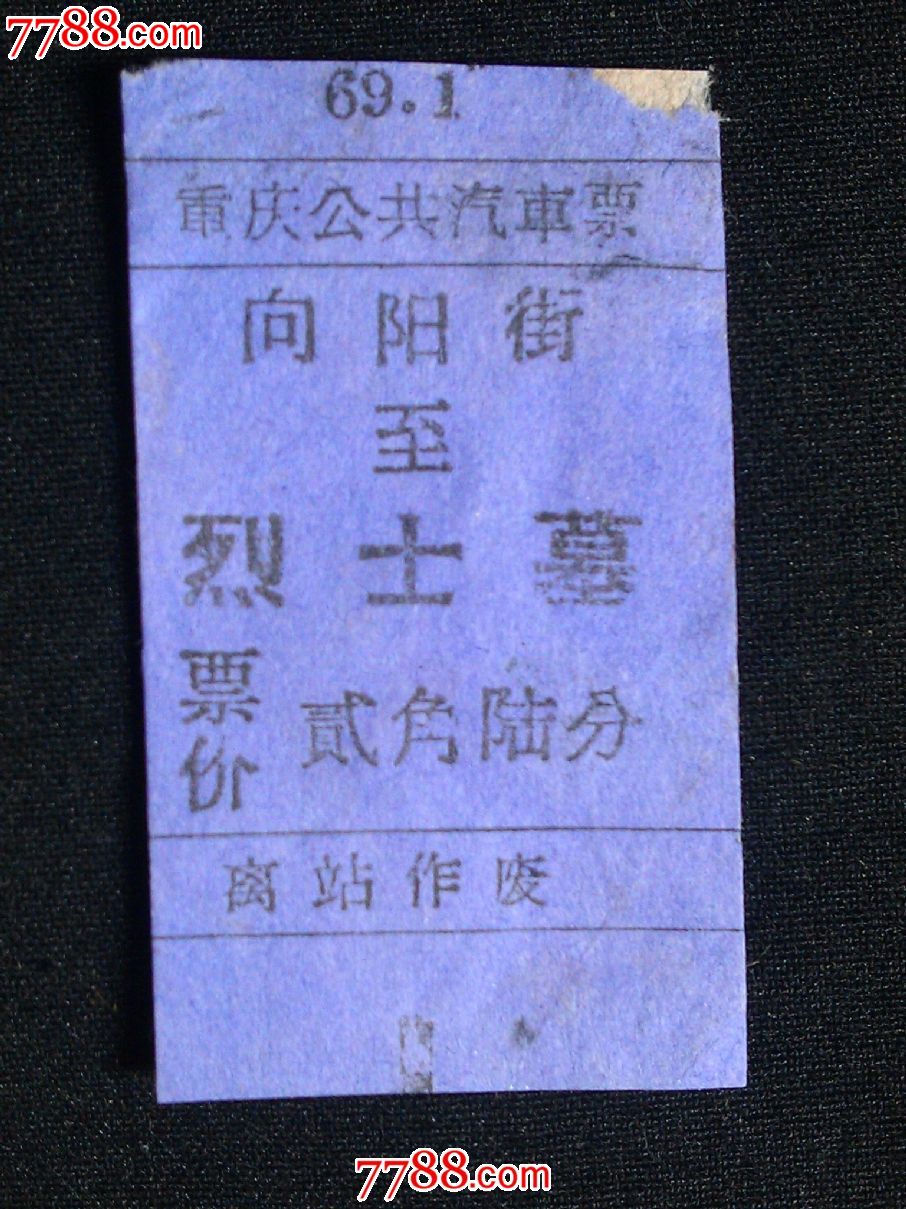 7788.com
69.1
重庆公共汽車票
向阳街
至
烈士墓
票价
贰角陆分
离站作废
7788.com